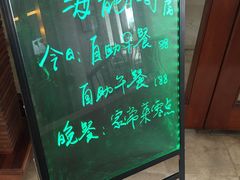 今日：自助早餐 98
自助午餐 188
晚餐：家常菜零点